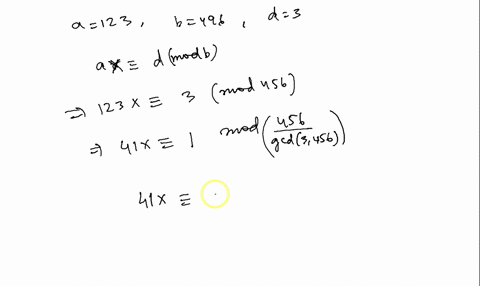 a=123, b=496, d=3
ax ≡ d (mod b)
⇒ 123x ≡ 3 (mod 456)
⇒ 41x ≡ 1 mod(456/gcd(3,456))
41x ≡